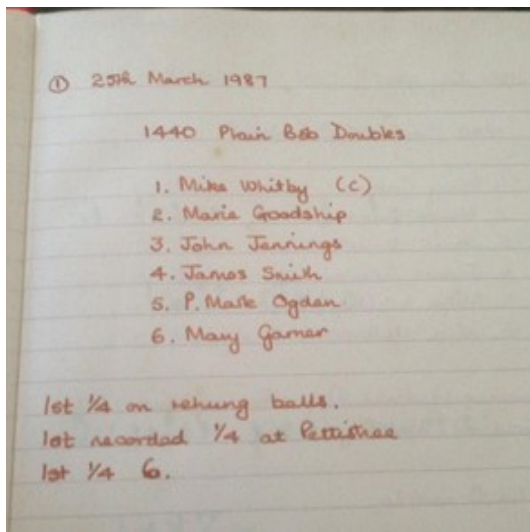 ① 25th March 1987
1440 Plain Bob Doubles
1. Mike Whitby (C)
2. Maria Goodship
3. John Jennings
4. James Smith
5. P. Mark Ogden
6. Mary Garner
1st 1/4 on rehung bells.
1st recorded 1/4 at Pettistree
1st 1/4 6.